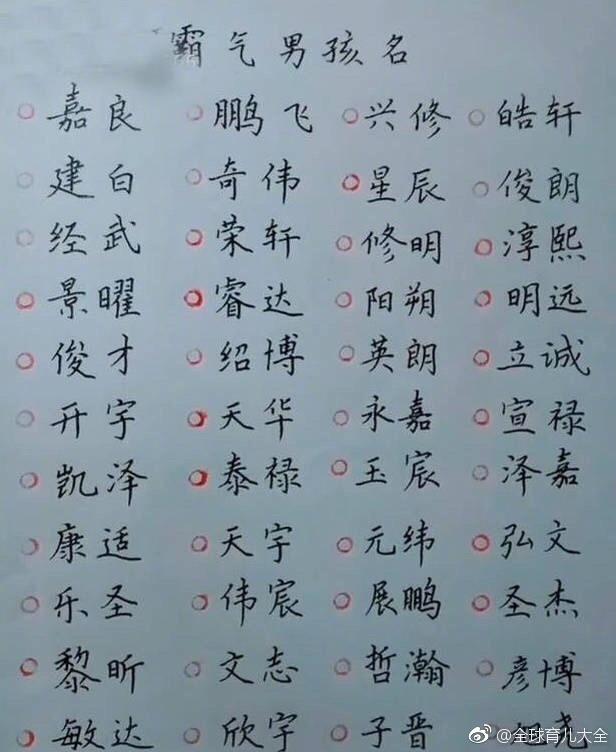 霸气男孩名
嘉良 鹏飞 兴修 皓轩
建白 奇伟 星辰 俊朗
经武 荣轩 修明 淳熙
景曜 睿达 阳朔 明远
俊才 绍博 英朗 立诚
开宇 天华 永嘉 宣禄
凯泽 泰禄 玉宸 泽嘉
康适 天宇 元纬 弘文
乐圣 伟宸 展鹏 圣杰
黎昕 文志 哲瀚 彦博
敏达 欣宇 子晋
@全球育儿大全